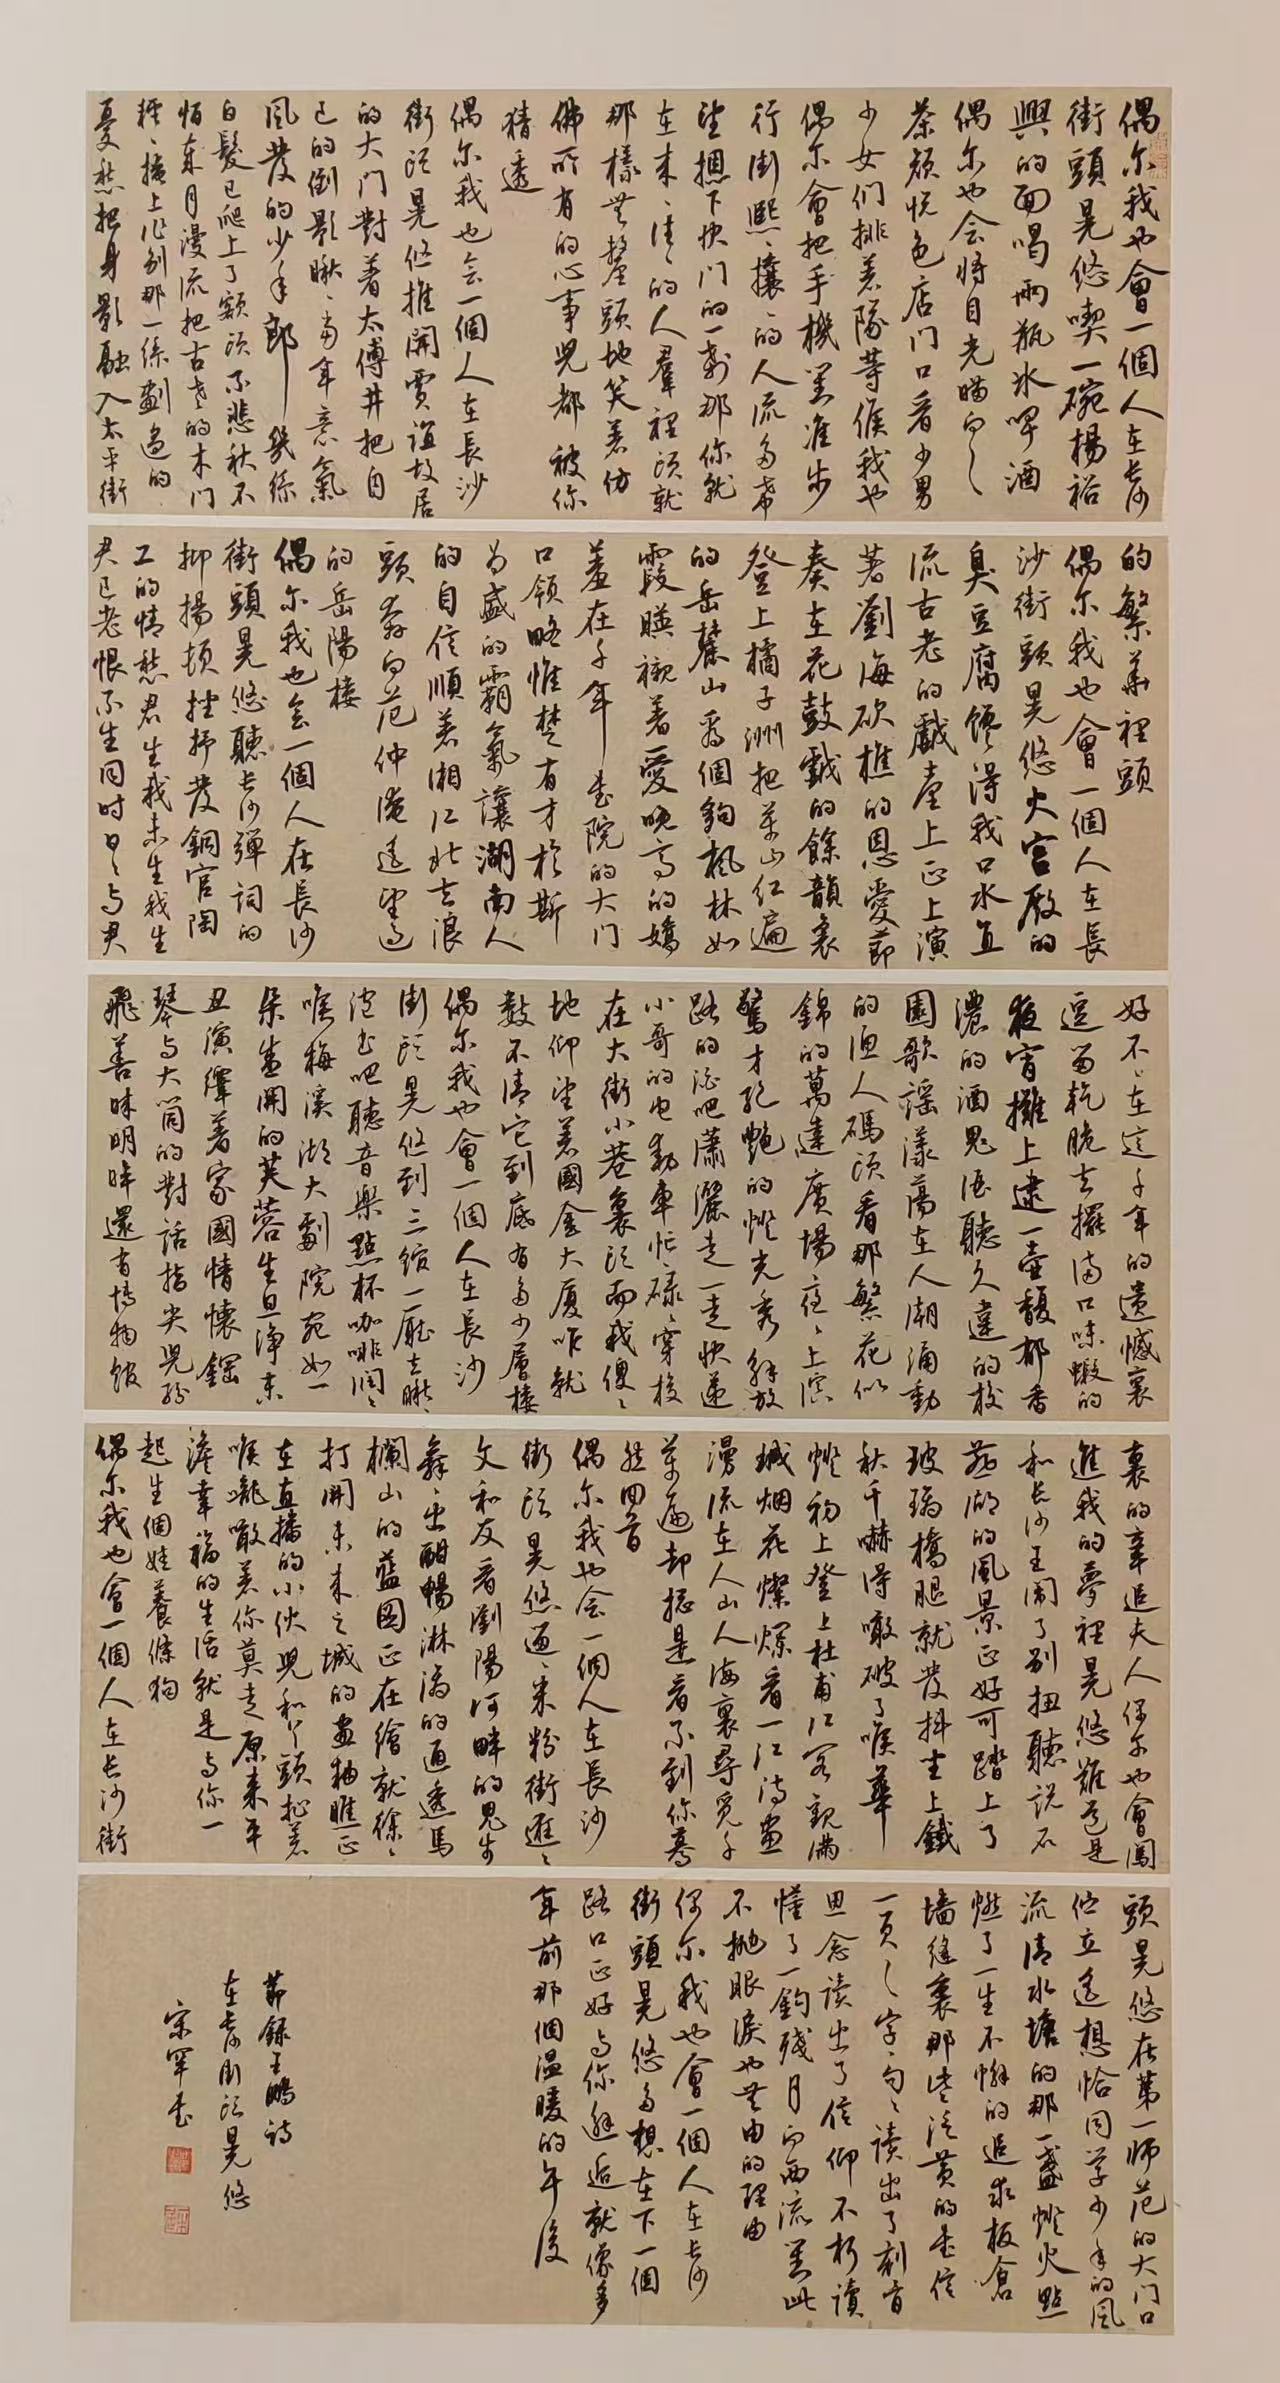 偶尔我也會一個人在长沙
街頭晃悠喫一碗楊裕
興的面喝兩瓶冰啤酒
偶尔也会将目光瞄向々
茶颜悦色店门口看少男
少女们排着隊等候我也
偶尔會把手機对准步
行街熙々攘々的人流多希
望摁下快门的一刹那你就
在来々往々的人羣裡头就
那樣无釐頭地笑着仿
佛所有的心事児都被你
猜透
偶尔我也会一個人在長沙
街头晃悠推開賈誼故居
的大门對着太傅井把自
己的倒影瞅々当年意氣
风发的少年郎幾缕
白髮已爬上了额头不悲秋不
怕东月漫流把古老的木门
轻々掩上作别那一缕劃过的
憂愁把身影融入太平街
的繁华裡頭
偶尔我也會一個人在長
沙街頭晃悠火宫殿的
臭豆腐馋得我口水直
流古老的戲台上正上演
著劉海砍樵的恩愛節
奏在花鼓戲的餘韻裊
登上橘子洲把万山红遍
的岳麓山看個夠枫林如
霞映襯着愛晚亭的嬌
羞在千年书院的大门
口领略惟楚有才於斯
为盛的霸氣讓湖南人
的自信順着湘江北去浪
頭奔向范仲淹遥望过
的岳陽楼
偶尔我也会一個人在長沙
街頭晃悠聽长沙弹词的
抑揚顿挫抒发銅官陶
工的情愁君生我未生我生
君已老恨不生同时日々与君
好不々在這千年的遗憾裏
逗留乾脆去擺满口味蝦的
夜宵攤上逮一壶馥郁香
濃的酒鬼酒聽久違的校
園歌謠漾蕩在人潮涌動
的渔人碼头看那繁花似
錦的萬達廣場夜々上演
驚才绝艷的燈光秀解放
路的酒吧潇灑走一走快递
小哥的电動車忙々碌々穿梭
在大街小巷裏头而我傻々
地仰望着國金大厦咋就
數不清它到底有多少層楼
偶尔我也會一個人在長沙
街头晃悠到三馆一厅去瞅々
泡书吧聽音樂點杯咖啡润々
喉梅溪湖大劇院宛如一
朵盛開的芙蓉生旦净末
丑演繹着家國情懷鋼
琴与大筒的對話指尖児纷
飛善昧明眸還有博物馆
裏的辛追夫人偶尔也會闖
進我的夢裡晃悠難道是
和长沙王闹了别扭聽说石
燕湖的風景正好可踏上了
玻璃橋腿就发抖坐上鐵
秋千嚇得噉破了喉華
燈初上登上杜甫江阁观满
城烟花燦爛看一江诗畫
漫流在人山人海裏尋覓千
萬遍却揔是看不到你蓦
然回首
偶尔我也会一個人在長沙
街头晃悠逛々米粉街遛々
文和友看劉陽河畔的鬼步
舞々出酣暢淋漓的通透馬
欄山的藍图正在繪就徐々
打開未来之城的画轴瞧正
在直播的小伙児和丫頭扯着
喉嚨噉着你莫走原来平
淡幸福的生活就是与你一
起生個娃養條狗
偶尔我也會一個人在长沙街
頭晃悠在第一师范的大门口
伫立遥想恰同学少年的风
流清水塘的那一盏燈火點
燃了一生不懈的追求板倉
墙縫裏那些泛黄的书信
一頁々字々句々读出了刻骨
思念读出了信仰不朽读
懂了一鈎残月向西流对此
不抛眼淚也无由的理由
偶尔我也會一個人在长沙
街頭晃悠多想在下一個
路口正好与你邂逅就像多
年前那個温暖的午後
節録王鵬诗
在长沙街头晃悠
宋罕书